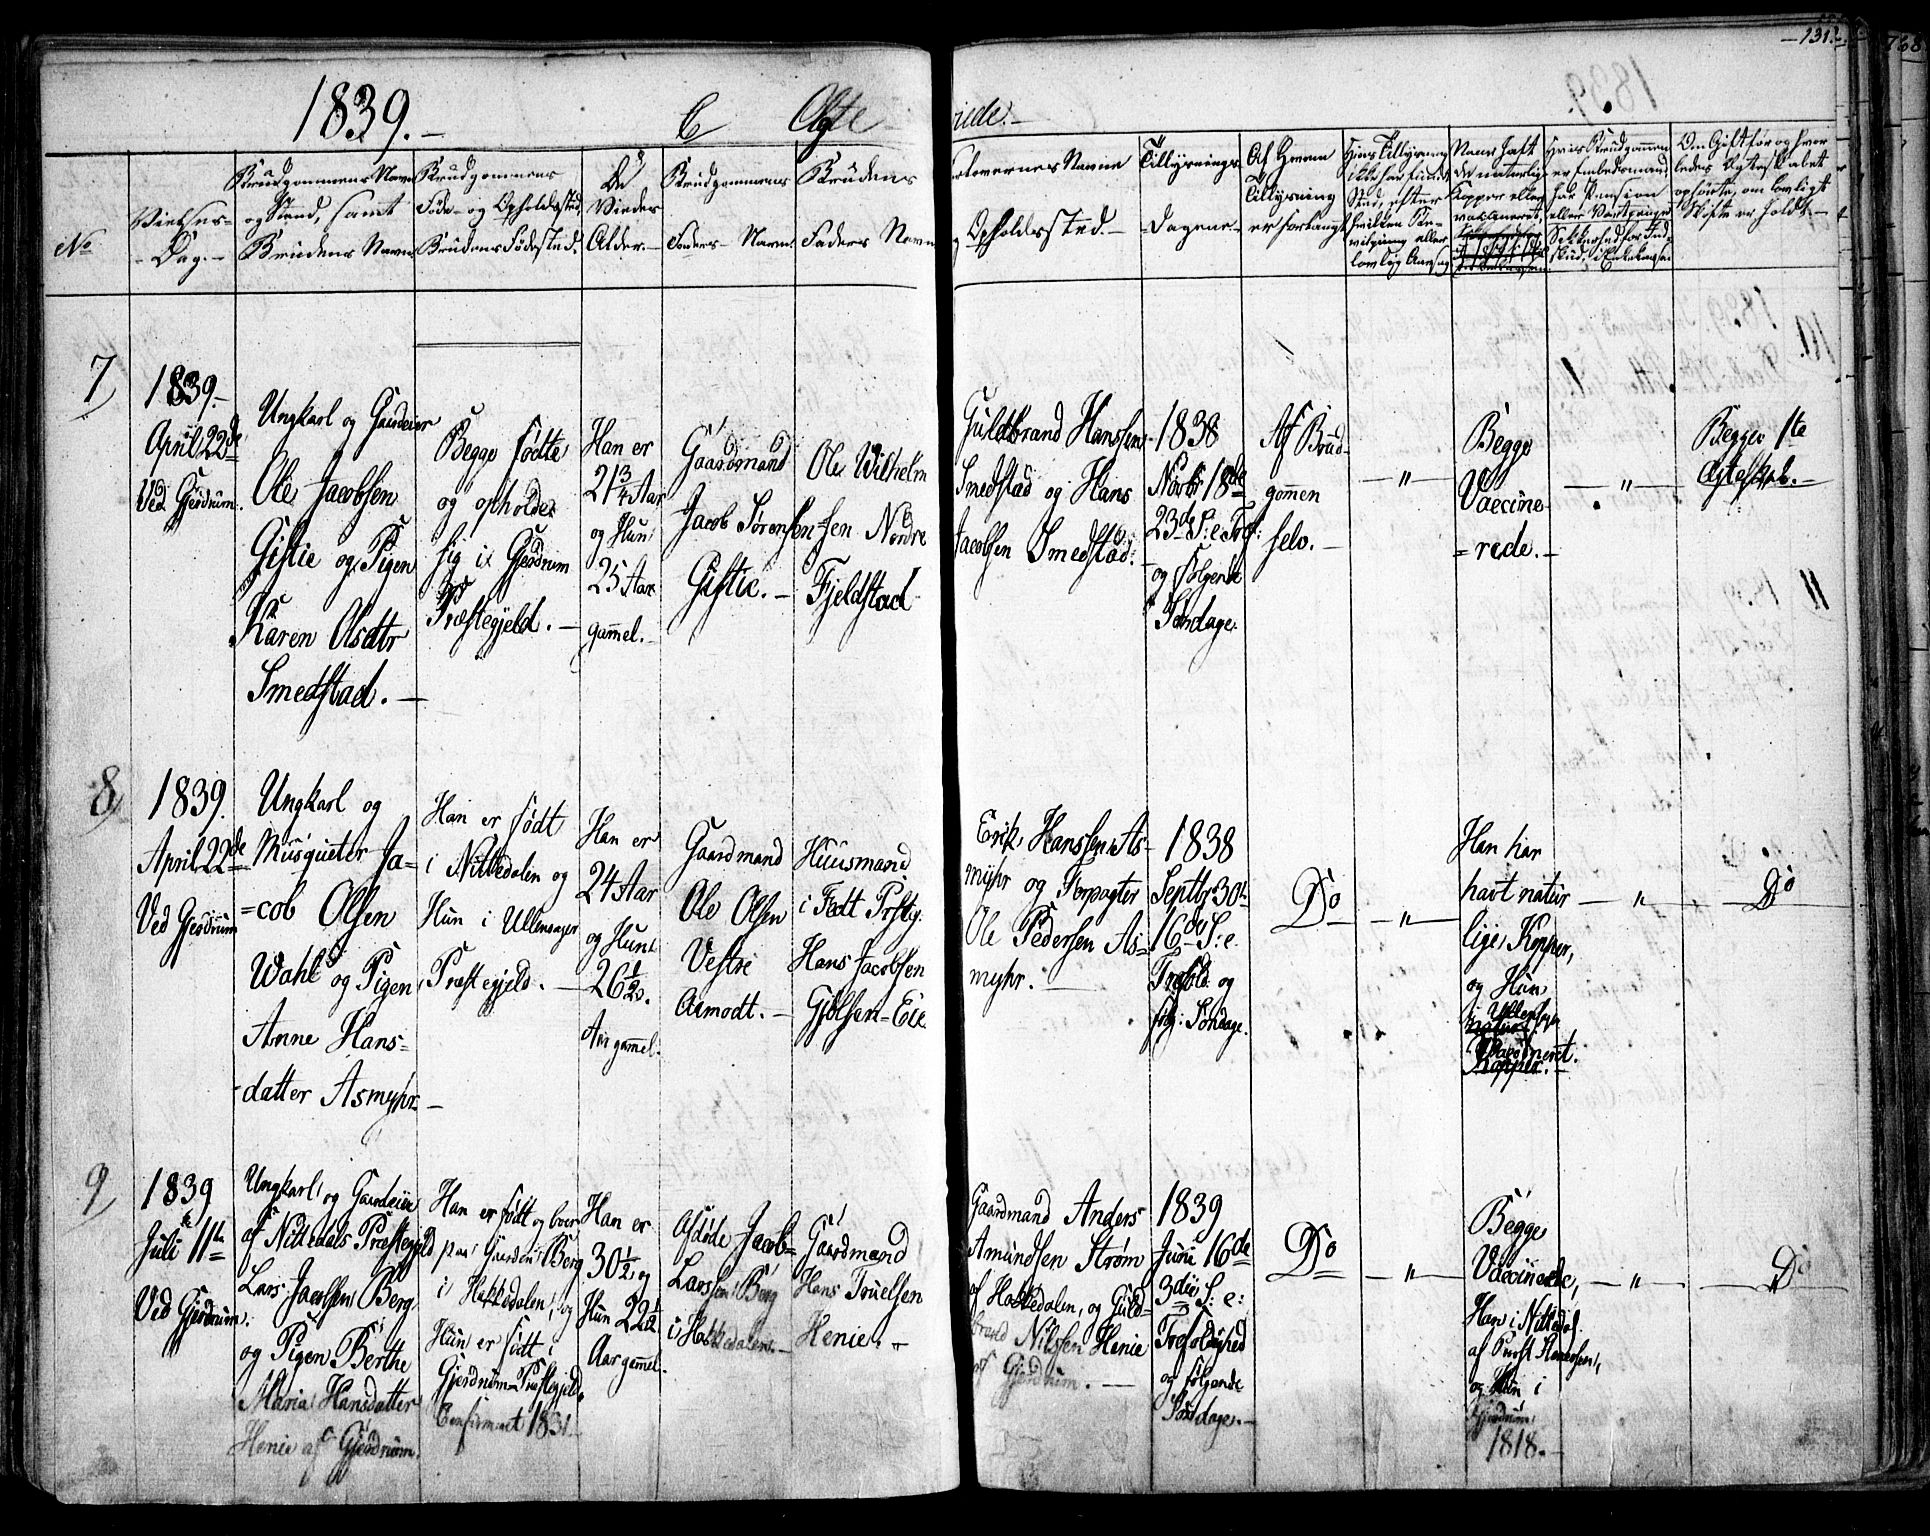 131.
1839.
C
Ægte
viede.
No
Vielses-
Dag.
Brudgommens Navn
og Stand, samt
Brudens Navn
Brudgommens
Føde- og Opholdssted,
Brudens Fødested.
De
Viedes
Alder.
Brudgommens
Faders Navn
Brudens
Faders Navn
Forlovernes Navne
og
Opholdssted.
Tillysnings-
Dagene
Af hvem
Tillysning
er forlangt
Hvis Tillysning
ikke har fundet
Sted, efter
hvilken Be-
vilgning eller
lovlig Aarsag
Naar haft
de naturlige
Kopper eller
vaccineret.
Hvis Brudgommen
er Embedsmand
har Pension
eller Ventepenge
Sikkerhed for Ind-
skud i Enkekassen
Om Gift før og hvor
ledes Ægteskabet
ophævte, om lovligt
Skifte er holdt.
7
1839.
April 22de
Ved Gjerdrum.
Ungkarl og Gaardeier
Ole Jacobsen
Gistie og Pigen
Karen Olsdtr
Smedstad.
Begge fødte
og opholder
sig i Gjerdrum
Præstegjeld.
Han er
21 3/4 Aar
og Hun
25 Aar
gammel.
Gaardmand
Jacob Sørensen
Gistie.
Ole Wilhelm
sen Nordre
Fjeldstad
Guldbrand Hanssen
Smedstad og Hans
Jacobsen Smedstad.
1838
Novbr 18de
23de S: e. Tref:
og følgende
Søndage.
Af Brud-
gommen
selv.
"
Begge
Vaccine-
rede.
"
Begges 1te
Ægteskab.
8
1839.
April 22de
Ved Gjerdrum
Ungkarl og
Musqueter Ja-
cob Olsen
Wahl og Pigen
Anne Hans-
datter Asmyhr
Han er født
i Nittedalen og
Hun i Ullensager
Præstegjeld.
Han er
24 Aar
og Hun
26 1/2.
Aar gammel.
Gaardmand
Ole Olsen
Vestre
Aamodt.
Huusmand
i Fedt Prstg.
Hans Jacobsen
Gjølsen-Eie
Erik Hanssen As-
myhr og Forpagter
Ole Pedersen As-
myhr.
1838
Septbr 30te
16de S: e.
Trefold. og
følg: Søndage.
Do
"
Han har
havt natur
lige Kopper,
og Hun
Vaccineret.
"
Do
9
1839
Juli 11te
Ved Gjerdrum.
Ungkarl og Gaardeier
af Nittedals Præstegjeld
Lars Jacobsen Berg
og Pigen Berthe
Maria Hansdatter
Henie af Gjerdrum.
Han er født og boer
paa Gaarden Berg
i Hakkedalen, og
Hun er født i
Gjerdrum Præstegjeld.
Confirmeret 1831.
Han er
30 1/2 og
Hun 22 1/2
Aar gammel.
Afdøde Jacob
Larssen Berg
i Hakkedalen.
Gaardmand
Hans Truelsen
Henie.
Gaardmand Anders
Amundsen Strøm
af Hakkedalen, og Guld-
brand Nilssen Henie
af Gjerdrum.
1839
Juni 16de
3die S: e:
Trefoldighed
og følgende
Søndage.
Do
"
Begge
Vaccinerede,
Han i Nittedal
af
og Hun i
Gjerdrum
1818.
"
Do